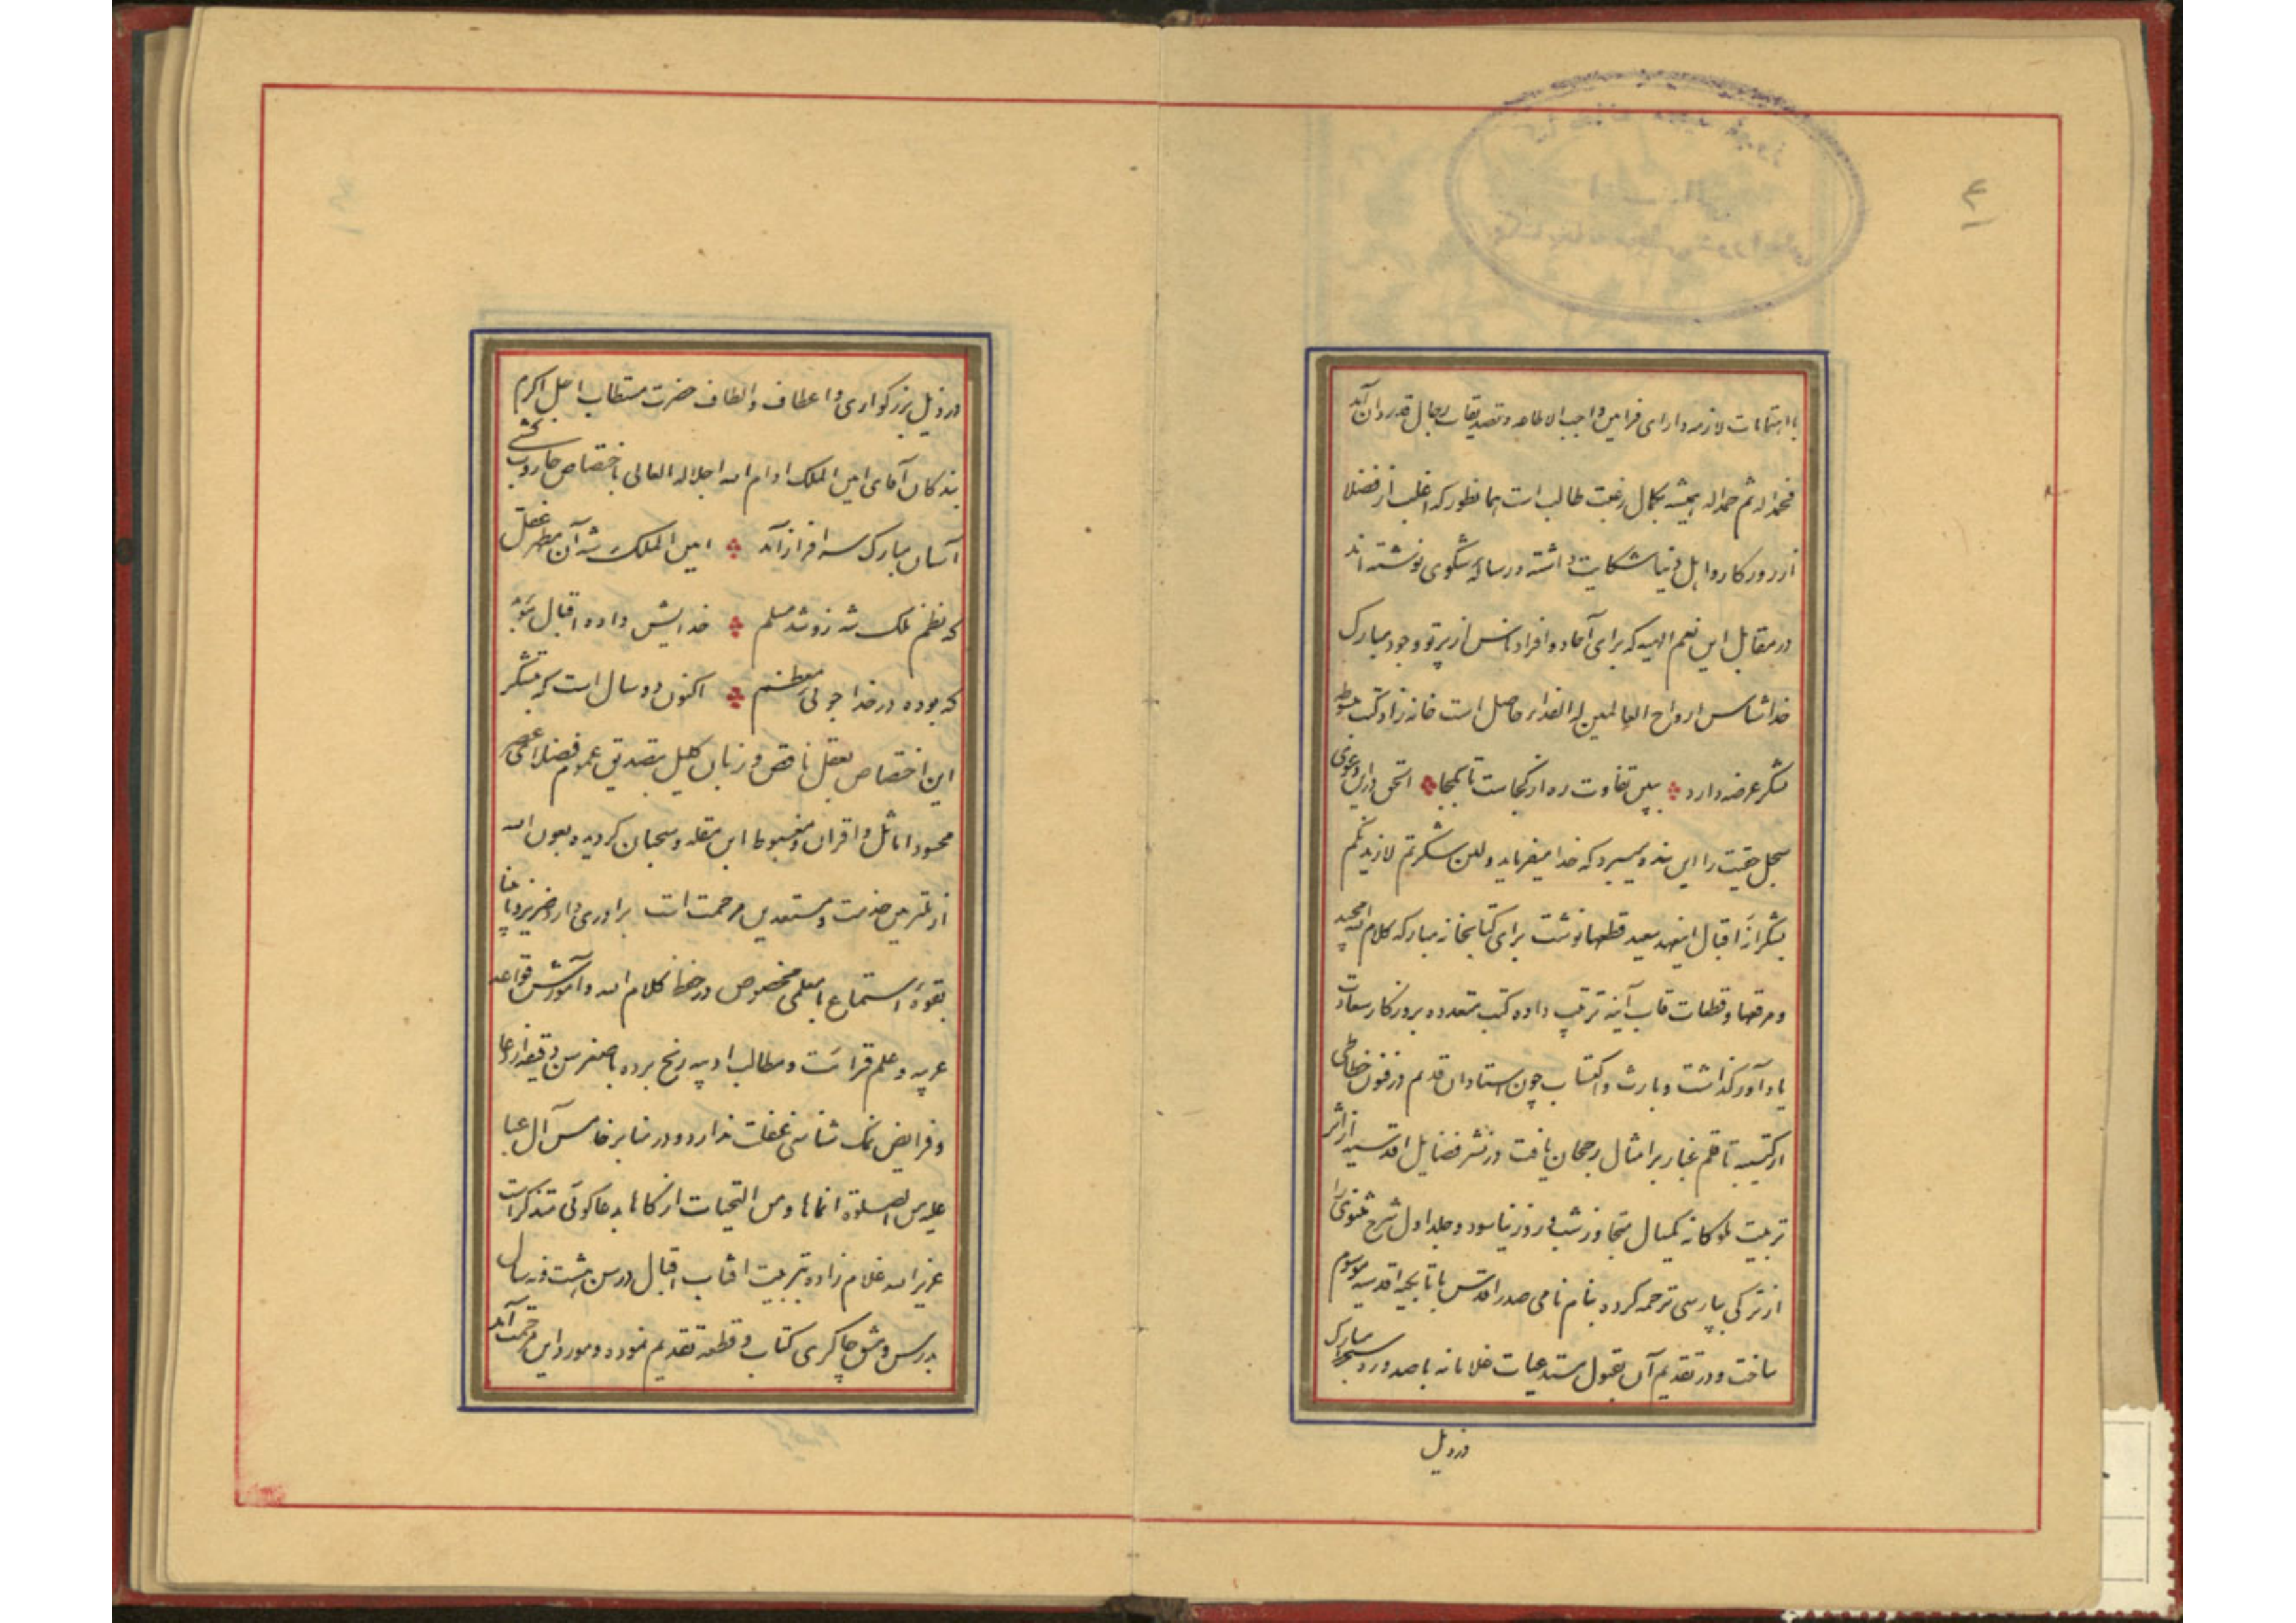 با اهتمامات لازمه دارای فرامین واجب الاطاعه و تصدیقات رجال قدردان آمد
فحمداله ثم حمداله همیشه بکمال رغبت طالب است همانطور که اغلب از فضلا
از روزکار و اهل دنیا شکایت داشته و رساله شکوی نوشته اند
در مقابل این نعم الهیه که برای آحاد و افراد ناس از پرتو وجود مبارک
خداشناس ارواح العالمین له الفداء حاصل است خانه زاد کتب مبسوطه
شکر عرضه دارد ببین تفاوت ره از کجاست تا بکجا الحق دارای دعوی
سجل حقیت را این بنده میسپرد که خدا میفرماید ولئن شکرتم لازیدنکم
بشکرانهٔ اقبال اینعهد سعید قطعها نوشت برای کتابخانه مبارکه کلام اله مجید
و مرقعها و قطعات قاب آینه ترتیب داده کتب متعدده بروزکار سعادت
یادآور کذاشت و بارث و اکتساب چون استادان قدیم در فنون خطاطی
از کتیبه تا قلم غبار بر امثال رجحان یافت در نشر فضایل اقدسیه از اثر
تربیت ملوکانه یکسال متجاوز شب و روز نیاسود و جلد اول شرح مثنوی را
از ترکی بپارسی ترجمه کرده بنام نامی صدر اقدس با تابیجه اقدسیه موسوم
ساخت و در تقدیم آن بقبول مستدعیات غلامانه با صدور دستخط مبارک
در ذیل
در ذیل بزرکواری و اعطاف و الطاف حضرت مستطاب اجل اکرم
بندکان آقای امین الملک ادام اله اجلاله العالی باختصاص جاروب کشی
آستان مبارک سرافراز آمد امین الملک شه آن مظهر عقل
که نظم ملک شه زو شد مسلم خدایش داده اقبال
که بوده در خدا جوئی معظم اکنون دو سال است که بتشکر
این اختصاص بعقل ناقص و زبان کلیل بتصدیق عموم فضلای عصر
محسود اماثل و اقران و مغبوط ابن مقله و سحبان کردیده بعون اله
از ملتزمین خدمت و مستعدین مرحمت است برادری دارد ضریر و نابینا
بقوهٔ استماع با معلمی مخصوص در حفظ کلام اله و آموزش قواعد
عربیه و علم قرائت و مطالب ادبیه رنج برده با صغر سن دقیقه از دعا
و فرایض نمک شناسی غفلت ندارد و در منابر خامس آل عبا
علیه من الصلوة انماها و من التحیات ازکاها بدعاکوئی متذکر است
عزیزاله غلام زاده بتربیت افتاب اقبال در سن هشت و نه سال
بدرس و مشق چاکری کتاب و قطعه تقدیم نموده و مورد این مرحمت آمد